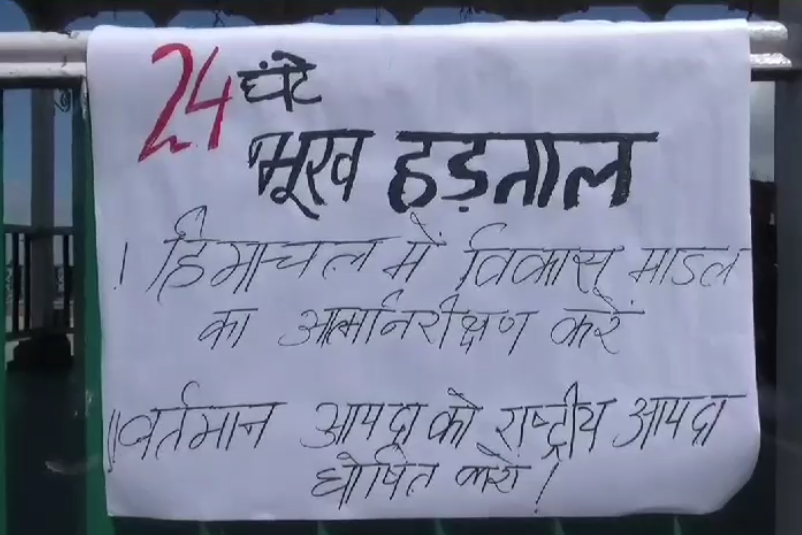 24 घंटे
भूख हड़ताल
। हिमाचल में विकास माडल
का आत्मनिरीक्षण करें
॥ वर्तमान आपदा को राष्ट्रीय आपदा
घोषित करो!